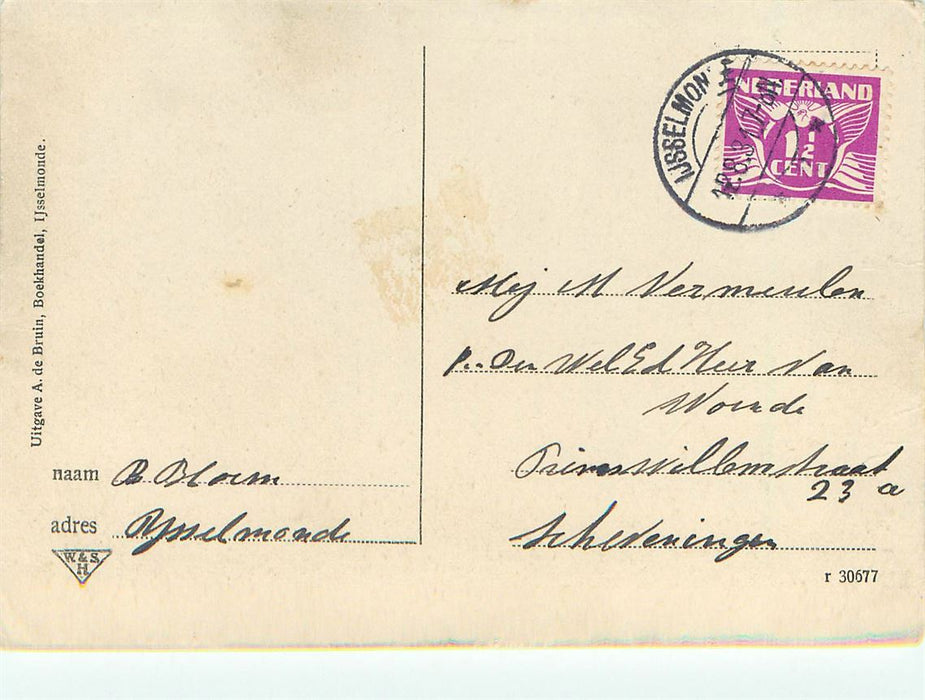 Uitgave A. de Bruin, Boekhandel, IJsselmonde.
naam B Bloem
adres IJsselmonde
W. & S.
H.
IJSSELMONDE
NEDERLAND
1 1/2
CENT
Mej M Vermeulen
Den WelEd Heer Van
Prins Willemstraat
23 a
Scheveningen
r 30677